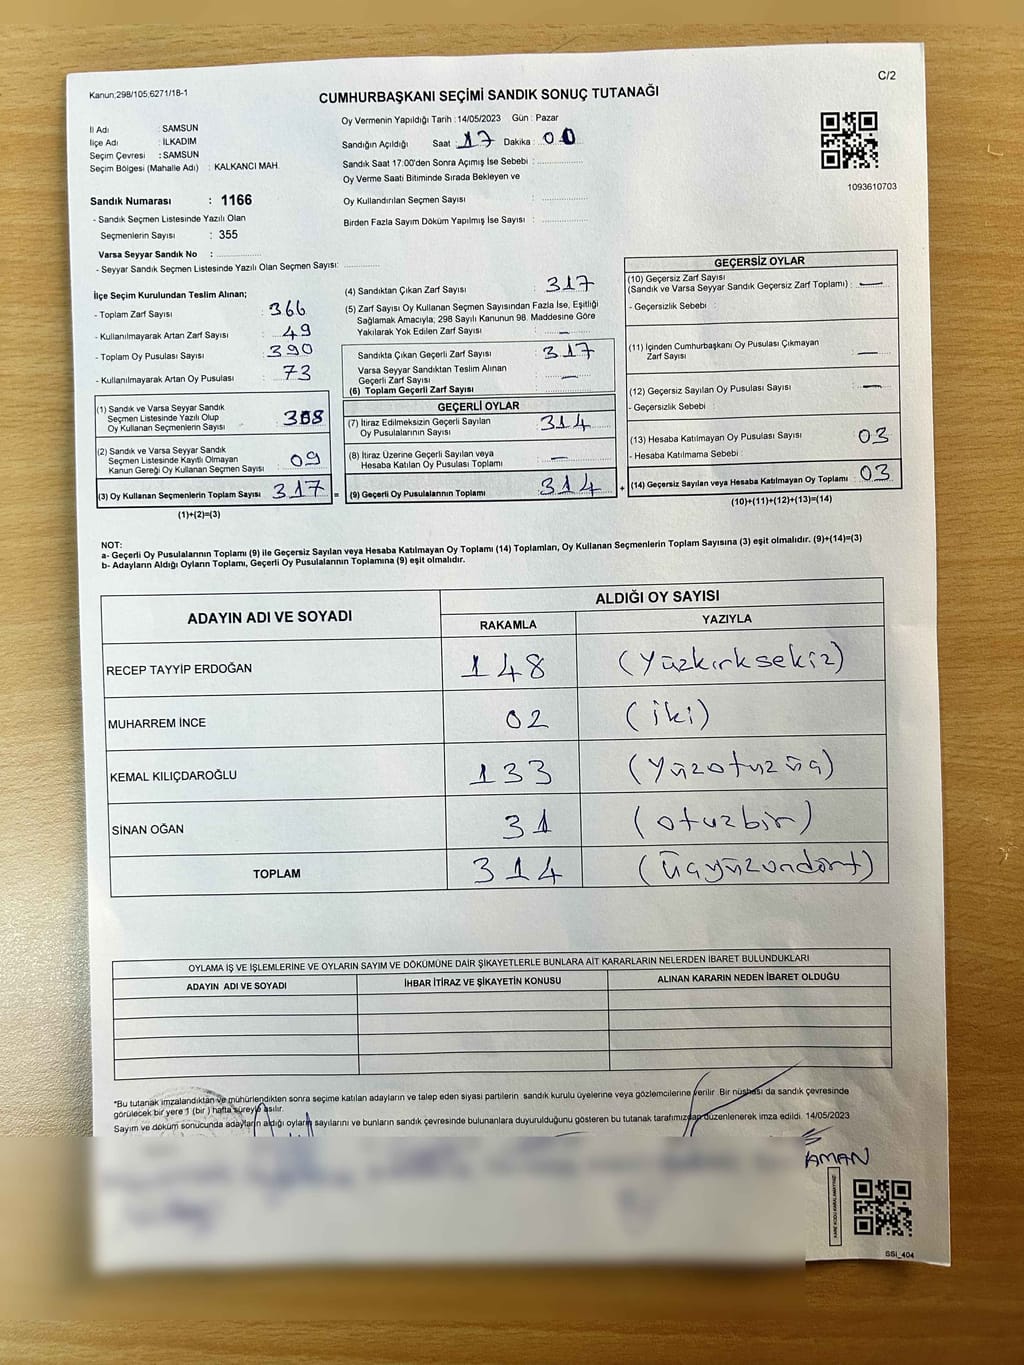 C/2
Kanun;298/105,6271/18-1
CUMHURBAŞKANI SEÇİMİ SANDIK SONUÇ TUTANAĞI
İl Adı : SAMSUN
İlçe Adı : İLKADIM
Seçim Çevresi : SAMSUN
Seçim Bölgesi (Mahalle Adı) : KALKANCI MAH.
Sandık Numarası : 1166
- Sandık Seçmen Listesinde Yazılı Olan
Seçmenlerin Sayısı : 355
Varsa Seyyar Sandık No :
- Seyyar Sandık Seçmen Listesinde Yazılı Olan Seçmen Sayısı:
Oy Vermenin Yapıldığı Tarih :14/05/2023 Gün : Pazar
Sandığın Açıldığı Saat : 17 Dakika : 00
Sandık Saat 17:00'den Sonra Açımış İse Sebebi :
Oy Verme Saati Bitiminde Sırada Bekleyen ve
Oy Kullandırılan Seçmen Sayısı :
Birden Fazla Sayım Döküm Yapılmış İse Sayısı :
1093610703
İlçe Seçim Kurulundan Teslim Alınan;
- Toplam Zarf Sayısı : 366
- Kullanılmayarak Artan Zarf Sayısı : 49
- Toplam Oy Pusulası Sayısı : 390
- Kullanılmayarak Artan Oy Pusulası : 73
(1) Sandık ve Varsa Seyyar Sandık
Seçmen Listesinde Yazılı Olup
Oy Kullanan Seçmenlerin Sayısı 308
(2) Sandık ve Varsa Seyyar Sandık
Seçmen Listesinde Kayıtlı Olmayan
Kanun Gereği Oy Kullanan Seçmen Sayısı 09
(3) Oy Kullanan Seçmenlerin Toplam Sayısı 317 =
(1)+(2)=(3)
(4) Sandıktan Çıkan Zarf Sayısı : 317
(5) Zarf Sayısı Oy Kullanan Seçmen Sayısından Fazla İse, Eşitliği
Sağlamak Amacıyla; 298 Sayılı Kanunun 98. Maddesine Göre
Yakılarak Yok Edilen Zarf Sayısı : —
Sandıkta Çıkan Geçerli Zarf Sayısı : 317
Varsa Seyyar Sandıktan Teslim Alınan
Geçerli Zarf Sayısı : —
(6) Toplam Geçerli Zarf Sayısı
GEÇERLİ OYLAR
(7) İtiraz Edilmeksizin Geçerli Sayılan
Oy Pusulalarının Sayısı : 314
(8) İtiraz Üzerine Geçerli Sayılan veya
Hesaba Katılan Oy Pusulası Toplamı : —
(9) Geçerli Oy Pusulalarının Toplamı 314 +
GEÇERSİZ OYLAR
(10) Geçersiz Zarf Sayısı
(Sandık ve Varsa Seyyar Sandık Geçersiz Zarf Toplamı) : —
- Geçersizlik Sebebi :
(11) İçinden Cumhurbaşkanı Oy Pusulası Çıkmayan
Zarf Sayısı —
(12) Geçersiz Sayılan Oy Pusulası Sayısı —
- Geçersizlik Sebebi
(13) Hesaba Katılmayan Oy Pusulası Sayısı 03
- Hesaba Katılmama Sebebi
(14) Geçersiz Sayılan veya Hesaba Katılmayan Oy Toplamı 03
(10)+(11)+(12)+(13)=(14)
NOT:
a- Geçerli Oy Pusulalarının Toplamı (9) ile Geçersiz Sayılan veya Hesaba Katılmayan Oy Toplamı (14) Toplamları, Oy Kullanan Seçmenlerin Toplam Sayısına (3) eşit olmalıdır. (9)+(14)=(3)
b- Adayların Aldığı Oyların Toplamı, Geçerli Oy Pusulalarının Toplamına (9) eşit olmalıdır.
ADAYIN ADI VE SOYADI ALDIĞI OY SAYISI
RAKAMLA YAZIYLA
RECEP TAYYİP ERDOĞAN 148 (yüzkırksekiz)
MUHARREM İNCE 02 (iki)
KEMAL KILIÇDAROĞLU 133 (yüzotuzüç)
SİNAN OĞAN 31 (otuzbir)
TOPLAM 314 (üçyüzondört)
OYLAMA İŞ VE İŞLEMLERİNE VE OYLARIN SAYIM VE DÖKÜMÜNE DAİR ŞİKAYETLERLE BUNLARA AİT KARARLARIN NELERDEN İBARET BULUNDUKLARI
ADAYIN ADI VE SOYADI İHBAR İTİRAZ VE ŞİKAYETİN KONUSU ALINAN KARARIN NEDEN İBARET OLDUĞU
*Bu tutanak imzalandıktan ve mühürlendikten sonra seçime katılan adayların ve talep eden siyasi partilerin sandık kurulu üyelerine veya gözlemcilerine verilir. Bir nüshası da sandık çevresinde
görülecek bir yere 1 (bir ) hafta süreyle asılır.
Sayım ve döküm sonucunda adayların aldığı oyların sayılarını ve bunların sandık çevresinde bulunanlara duyurulduğunu gösteren bu tutanak tarafımızdan düzenlenerek imza edildi. 14/05/2023
AMAN
SSİ_404